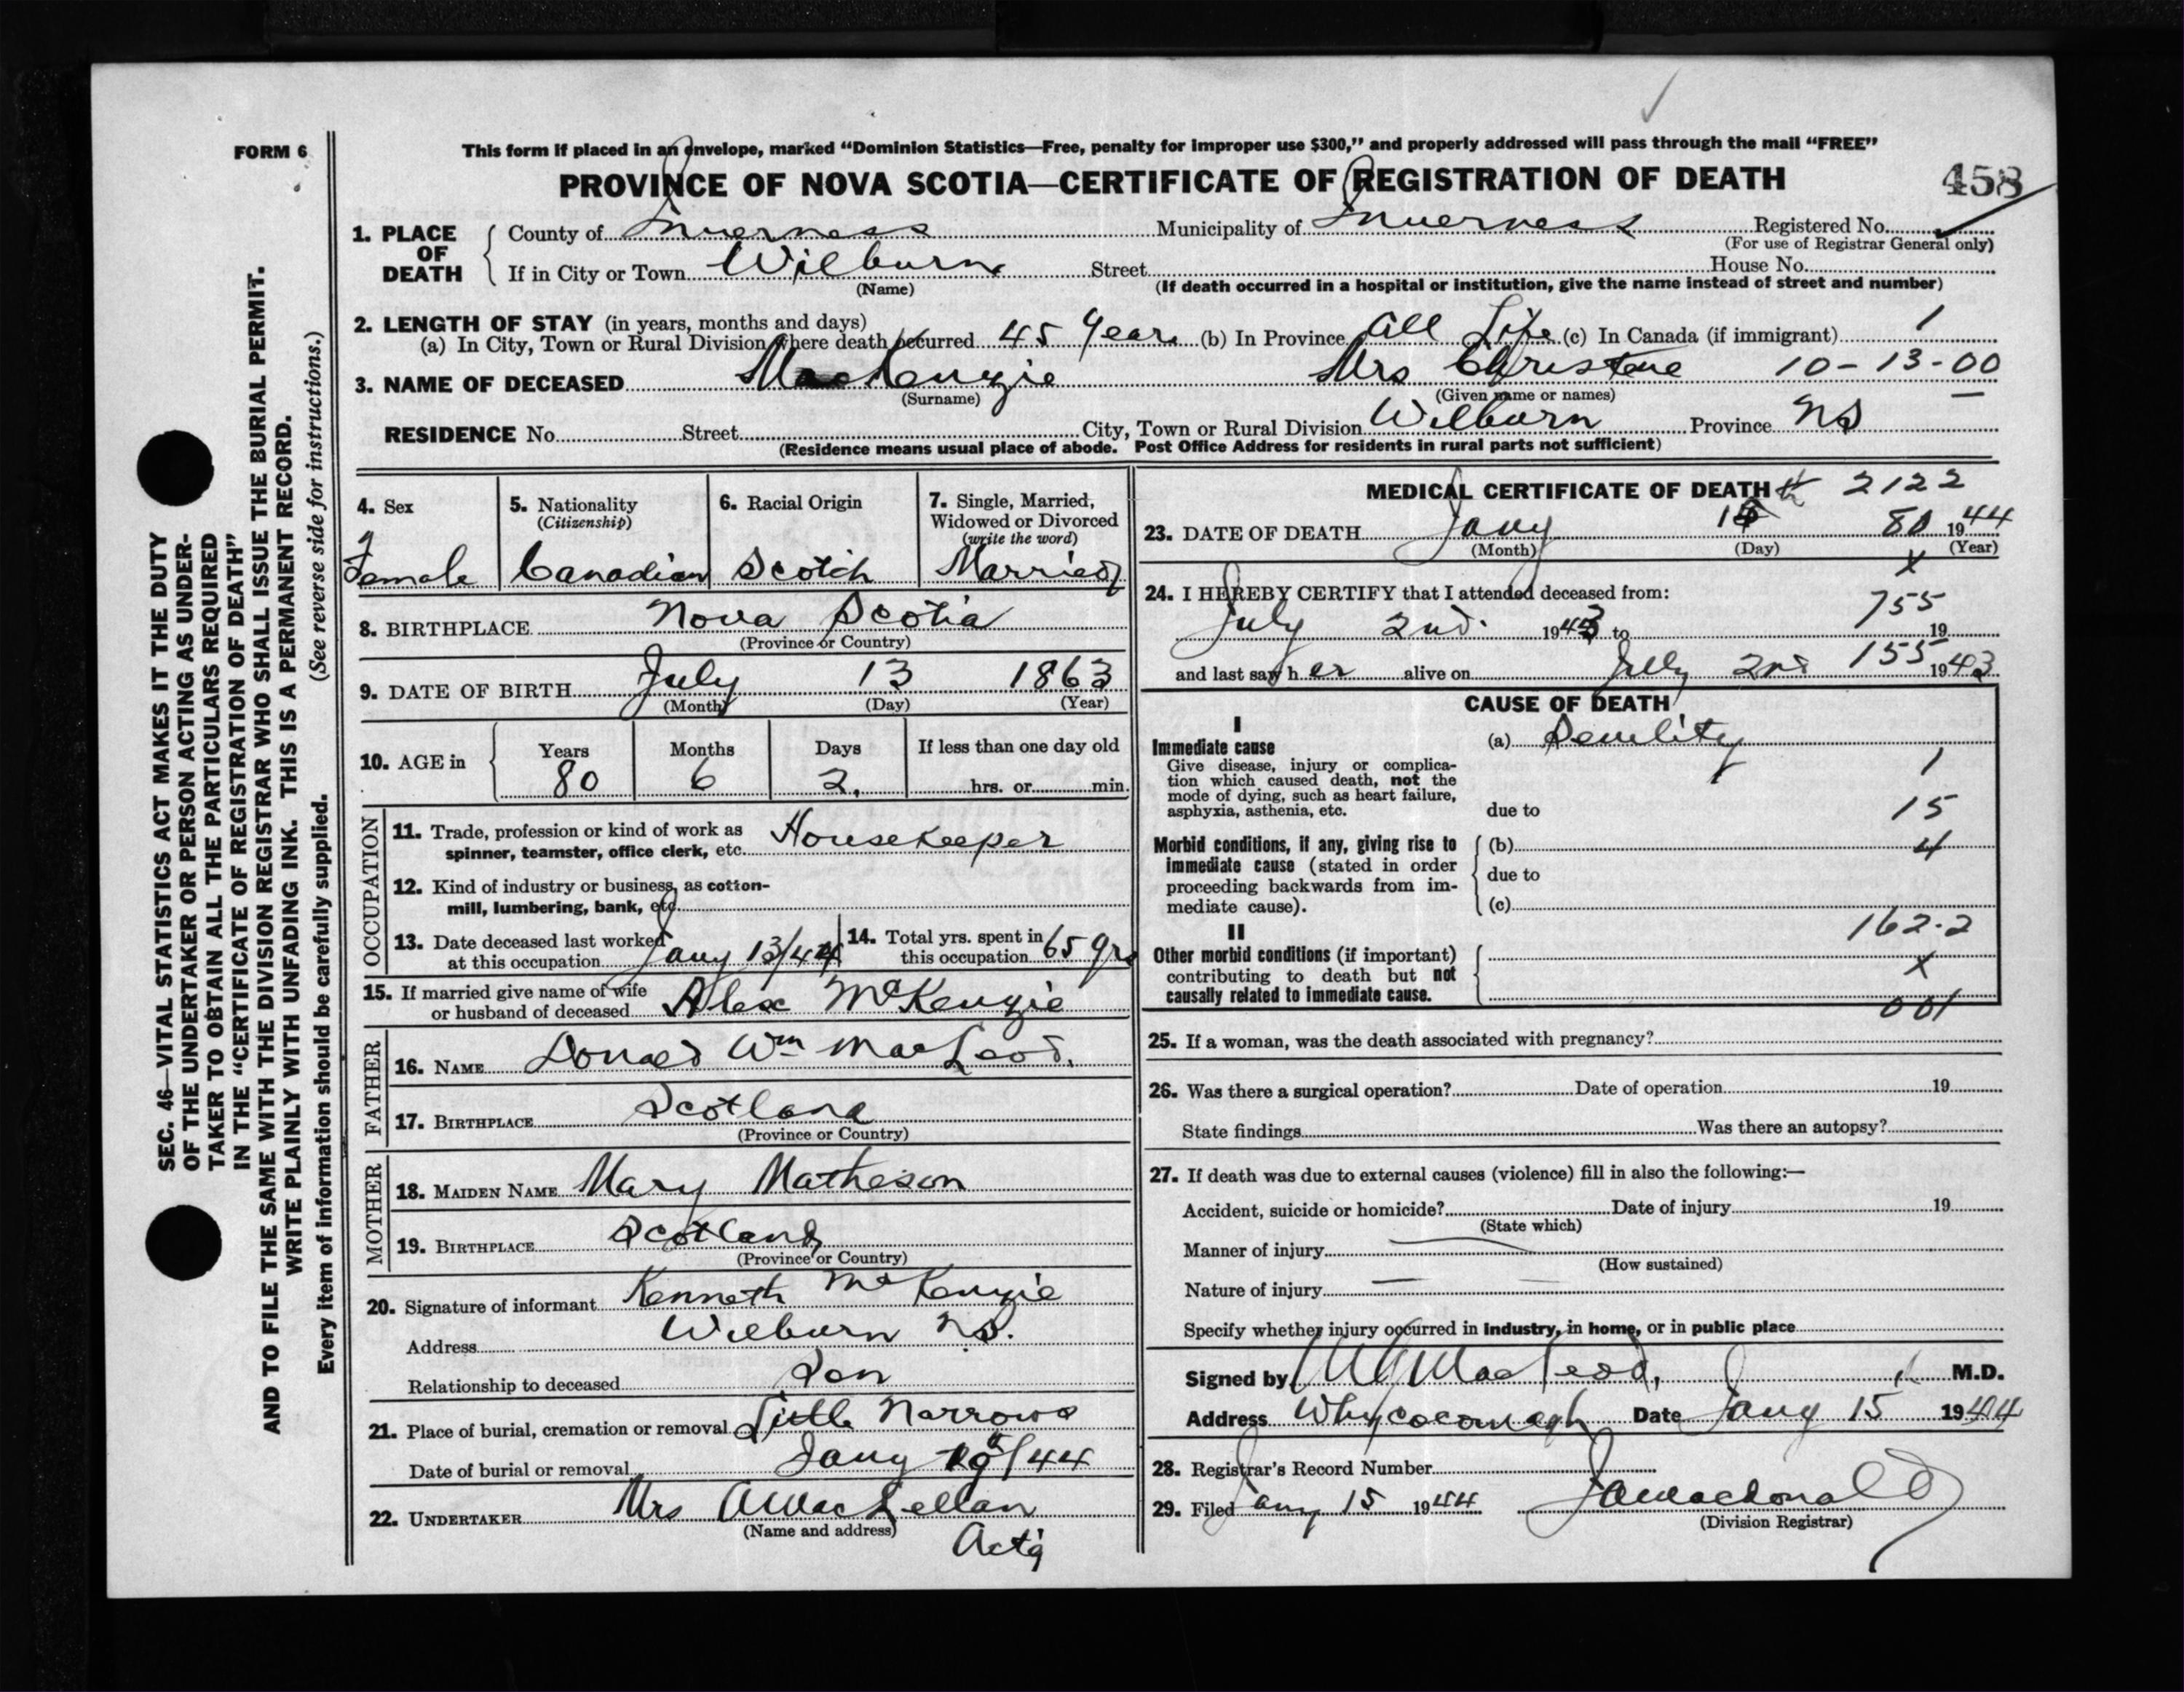 FORM 6
This form if placed in an envelope, marked “Dominion Statistics—Free, penalty for improper use $300,” and properly addressed will pass through the mail “FREE”
PROVINCE OF NOVA SCOTIA—CERTIFICATE OF REGISTRATION OF DEATH
458
1. PLACE OF DEATH
County of Inverness Municipality of Inverness Registered No.
(For use of Registrar General only)
If in City or Town Wilburn Street House No.
(Name) (If death occurred in a hospital or institution, give the name instead of street and number)
2. LENGTH OF STAY (in years, months and days)
(a) In City, Town or Rural Division where death occurred 45 Years (b) In Province All Life (c) In Canada (if immigrant) 1
3. NAME OF DECEASED MacKenzie Mrs Christene 10-13-00
(Surname) (Given name or names)
RESIDENCE No. Street City, Town or Rural Division Wilburn Province NS
(Residence means usual place of abode. Post Office Address for residents in rural parts not sufficient)
4. Sex
Female
5. Nationality
(Citizenship)
Canadian
6. Racial Origin
Scotch
7. Single, Married,
Widowed or Divorced
(write the word)
Married
8. BIRTHPLACE Nova Scotia
(Province or Country)
9. DATE OF BIRTH July 13 1863
(Month) (Day) (Year)
10. AGE in Years Months Days If less than one day old
80 6 2 hrs. or min.
OCCUPATION
11. Trade, profession or kind of work as
spinner, teamster, office clerk, etc. Housekeeper
12. Kind of industry or business, as cotton-
mill, lumbering, bank, etc.
13. Date deceased last worked
at this occupation Jany 13/44
14. Total yrs. spent in
this occupation 65 yrs
15. If married give name of wife
or husband of deceased Alex McKenzie
FATHER
16. NAME Donald Wm MacLeod.
17. BIRTHPLACE Scotland
(Province or Country)
MOTHER
18. MAIDEN NAME Mary Matheson
19. BIRTHPLACE Scotland
(Province or Country)
20. Signature of informant Kenneth McKenzie
Address Wilburn N.S.
Relationship to deceased Son
21. Place of burial, cremation or removal Little Narrows
Date of burial or removal Jany /44
22. UNDERTAKER Mrs A MacLellan
(Name and address)
Actg
MEDICAL CERTIFICATE OF DEATH 2122
23. DATE OF DEATH Jany 15 80 1944
(Month) (Day) (Year)
x
24. I HEREBY CERTIFY that I attended deceased from:
755
July 2nd. 1943 to 19
and last saw her alive on July 2nd 155 1943
CAUSE OF DEATH
I
Immediate cause
Give disease, injury or complica-
tion which caused death, not the
mode of dying, such as heart failure,
asphyxia, asthenia, etc.
(a) Senility
1
due to
15
Morbid conditions, if any, giving rise to
immediate cause (stated in order
proceeding backwards from im-
mediate cause).
(b)
4
due to
(c)
162.2
II
Other morbid conditions (if important)
contributing to death but not
causally related to immediate cause.
x
001
25. If a woman, was the death associated with pregnancy?
26. Was there a surgical operation? Date of operation 19
State findings Was there an autopsy?
27. If death was due to external causes (violence) fill in also the following:—
Accident, suicide or homicide? Date of injury 19
(State which)
Manner of injury
(How sustained)
Nature of injury
Specify whether injury occurred in industry, in home, or in public place
Signed by MacLeod, M.D.
Address Whycocomagh Date Jany 15 1944
28. Registrar's Record Number
29. Filed Jany 15 1944 JA Macdonald
(Division Registrar)
SEC. 46—VITAL STATISTICS ACT MAKES IT THE DUTY
OF THE UNDERTAKER OR PERSON ACTING AS UNDER-
TAKER TO OBTAIN ALL THE PARTICULARS REQUIRED
IN THE “CERTIFICATE OF REGISTRATION OF DEATH”
AND TO FILE THE SAME WITH THE DIVISION REGISTRAR WHO SHALL ISSUE THE BURIAL PERMIT.
WRITE PLAINLY WITH UNFADING INK. THIS IS A PERMANENT RECORD.
Every item of information should be carefully supplied. (See reverse side for instructions.)